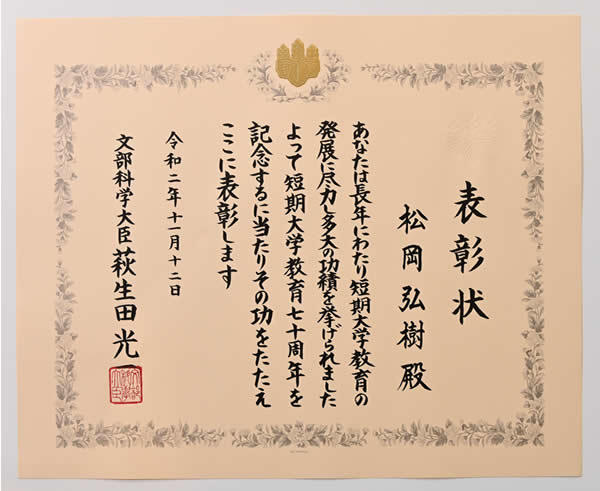 表彰状
松岡弘樹殿
あなたは長年にわたり短期大学教育の
発展に尽力し多大の功積を挙げられました
よって短期大学教育七十周年を
記念するに当たりその功をたたえ
ここに表彰します
令和二年十一月十二日
文部科学大臣 萩生田光一